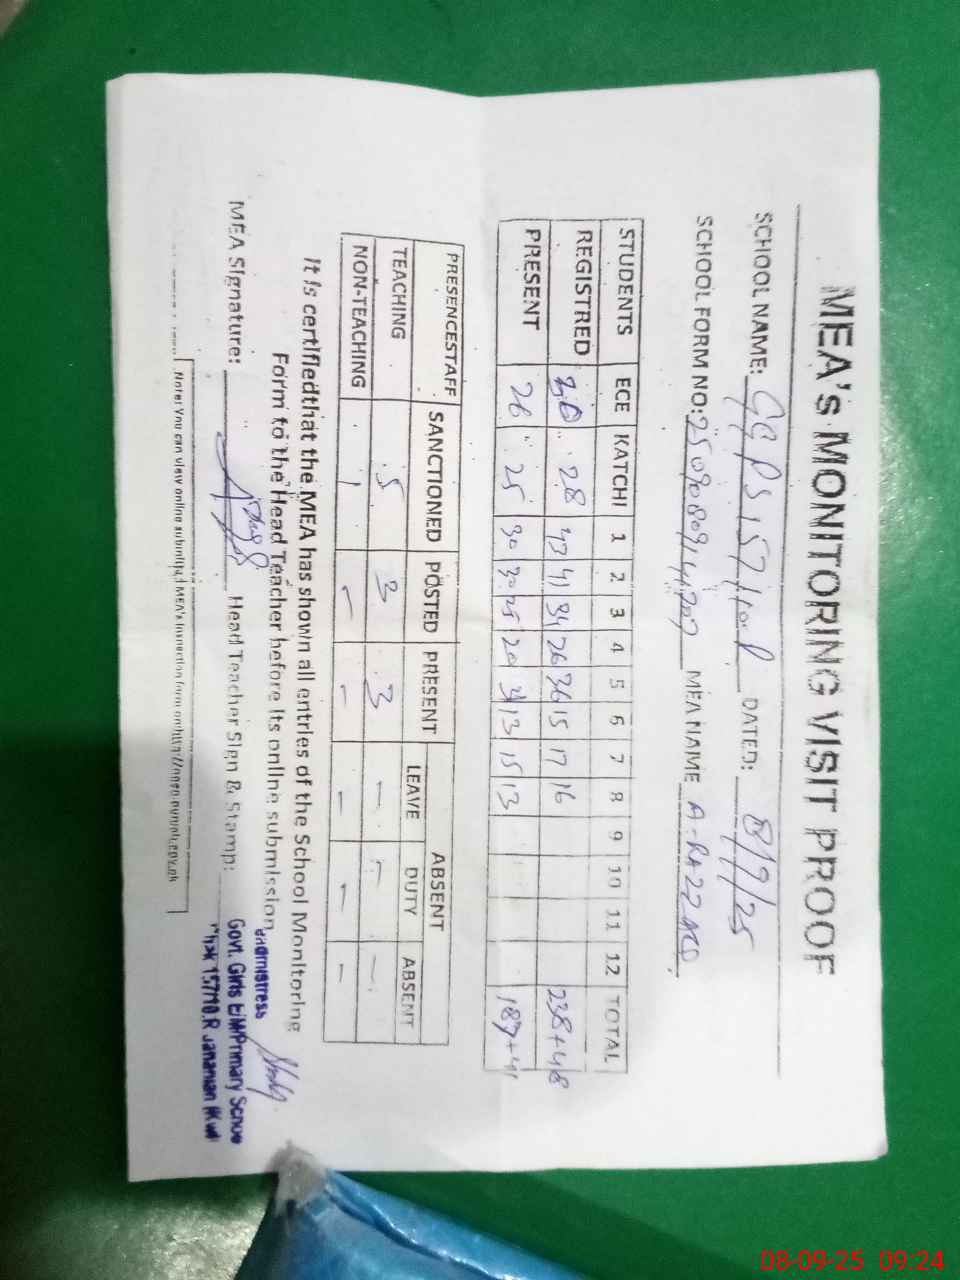 MEA's MONITORING VISIT PROOF
SCHOOL NAME: GGPS 157/10R DATED: 8/9/25
SCHOOL FORM NO: MEA NAME A-RAZZAQ
STUDENTS ECE KATCHI 1 2 3 4 5 6 7 8 9 10 11 12 TOTAL
REGISTRED 30 28 43 41 34 26 36 15 17 16 238+48
PRESENT 26 25 30 30 25 20 31 13 15 13 187+41
PRESENCESTAFF SANCTIONED POSTED PRESENT ABSENT
LEAVE DUTY ABSENT
TEACHING 5 3 3 - - -
NON-TEACHING 1 - - - - -
It is certifiedthat the MEA has shown all entries of the School Monitoring
Form to the Head Teacher before its online submission.
MEA Signature: Head Teacher Sign & Stamp:
Govt. Girls E/M Primary
157/10.R
Note: You can view online submitted MEA's Inspection form on
08-09-25 09:24